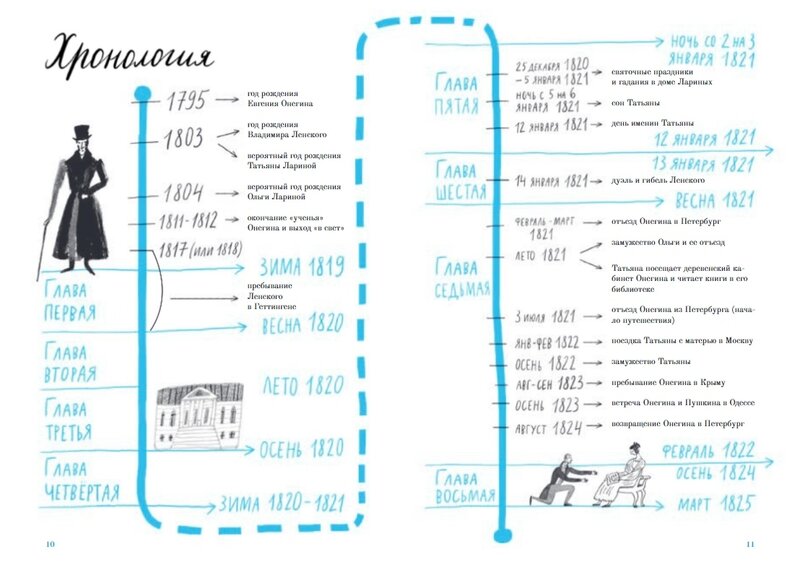 Хронология
1795
год рождения
Евгения Онегина
1803
год рождения
Владимира Ленского
вероятный год рождения
Татьяны Лариной
1804
вероятный год рождения
Ольги Лариной
1811-1812
окончание «ученья»
Онегина и выход «в свет»
1817 (или 1818)
пребывание
Ленского
в Геттингене
Зима 1819
Глава
первая
весна 1820
Глава
вторая
Лето 1820
Глава
третья
осень 1820
Глава
четвертая
зима 1820-1821
10
ночь со 2 на 3
января 1821
Глава
пятая
25 декабря 1820
– 5 января 1821
святочные праздники
и гадания в доме Лариных
ночь с 5 на 6
января 1821
сон Татьяны
12 января 1821
день именин Татьяны
12 января 1821
13 января 1821
Глава
шестая
14 января 1821
дуэль и гибель Ленского
весна 1821
Глава
седьмая
февраль-март
1821
отъезд Онегина в Петербург
лето 1821
замужество Ольги и ее отъезд
Татьяна посещает деревенский ка-
бинет Онегина и читает книги в его
библиотеке
3 июля 1821
отъезд Онегина из Петербурга (нача-
ло путешествия)
янв-фев 1822
поездка Татьяны с матерью в Москву
осень 1822
замужество Татьяны
авг-сен 1823
пребывание Онегина в Крыму
осень 1823
встреча Онегина и Пушкина в Одессе
август 1824
возвращение Онегина в Петербург
февраль 1822
осень 1824
Глава
восьмая
март 1825
11